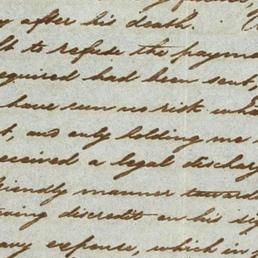 y after his death.
lt to refuse the paymen
required had been sent,
have seen no risk wha
t, and only telling me
received a legal discharg
friendly manner toward
ing discredit on his si
any expense, which in